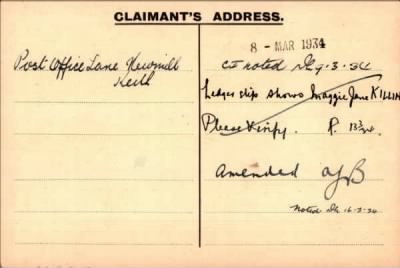 CLAIMANT'S ADDRESS.
8 - MAR 1934
Post Office Lane Newmill
Keith
CI noted 9.3.34
Ledger slip shows Maggie Jane KILLIN
Please Verify. R. 13/3/34.
Amended
Noted 16.3.34